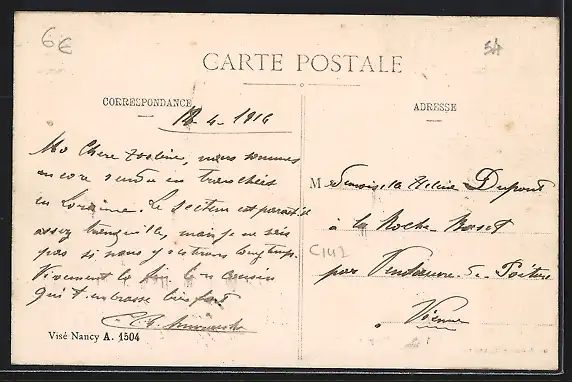 6€
54
CARTE POSTALE
CORRESPONDANCE
ADRESSE
18-4-1916
Ma Chere Hélène, nous sommes
encore rendu en tranchées
en Lorraine. Le secteur est parait-il
assez tranquille, mais je ne sais
pas si nous y serons longtemps.
Vivement la fin. Ton cousin
qui t'embrasse bien fort
Visé Nancy A. 1504
Memoiselle Hélène Dupont
à la Roche-
C142
par Vendeuvre-du-Poitou
Vienne